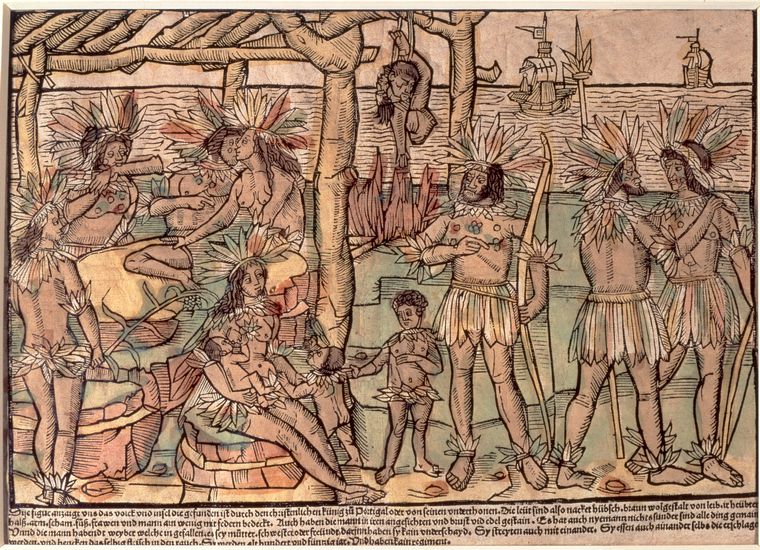 Dise figur anzaigt vns das volck vnd insel die gefunden ist durch den christenlichen künig zů Portigal oder von seinen vnderthonen. Die leüt sind also nacket hübsch. braun wolgestalt von leib. ir heübter
halß. arm. scham. füß. frawen vnd mann ain wenig mit federn bedeckt. Auch haben die mann in iren angesichten vnd brust vil edel gestain. Es hat auch nyemann nichts sunder sind alle ding gemain
Vnnd die mann habendt weyber welche in gefallen. es sey mütter, schwester oder freündt. darinn haben sy kain vnderschayd. Sy streyten auch mit einander. Sy essen auch ainander selbs die erschlagen
werden. vnd hencken das selbig fleisch in den rauch. Sy werden alt hundert vnd fünffzig iar. Vnd haben kain regiment.